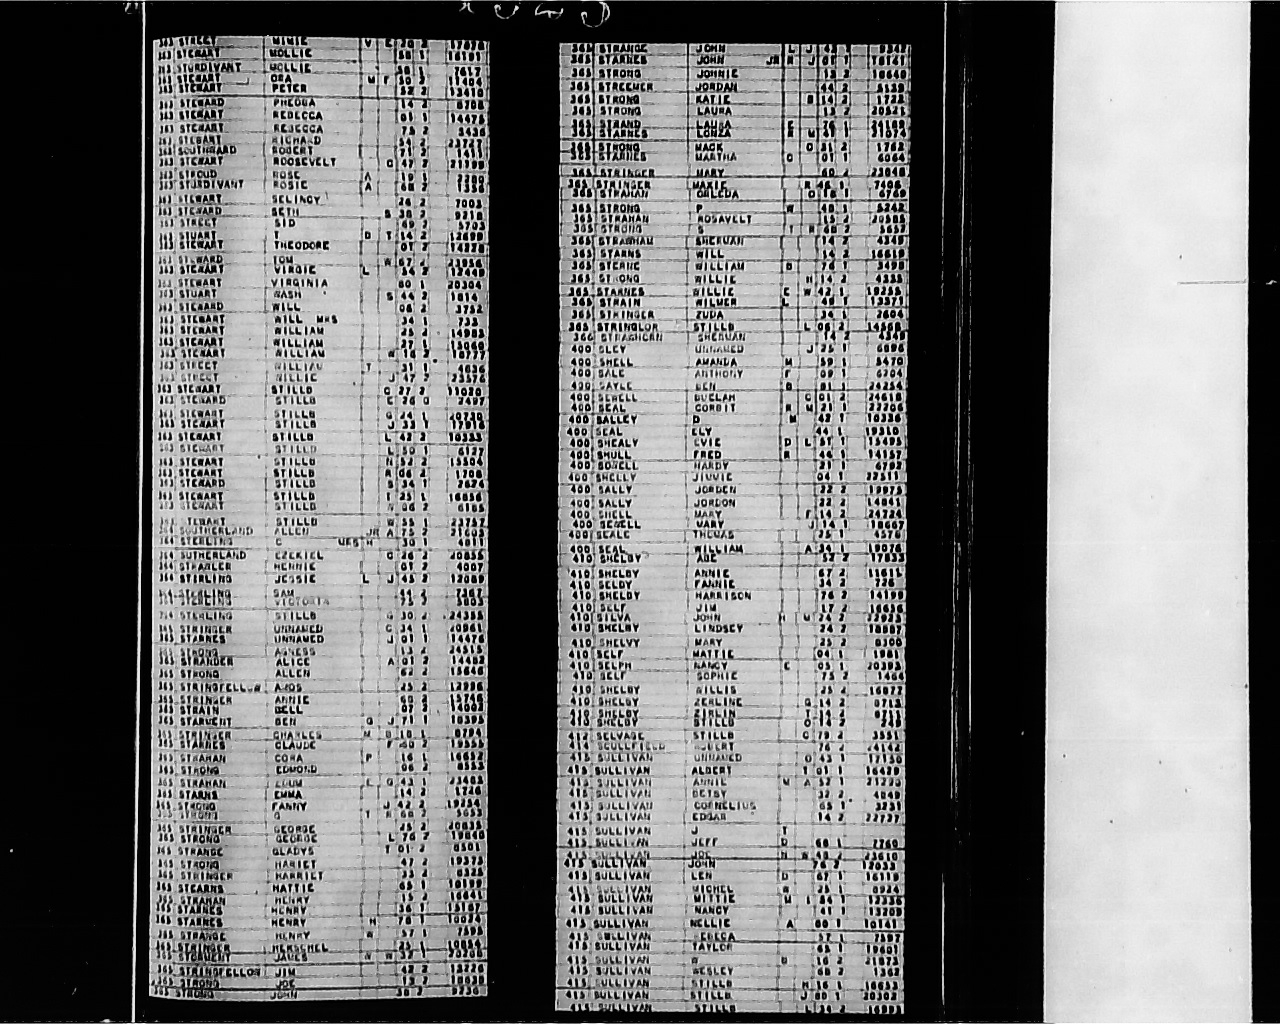 363 STREET MIMIE V
363 STEWART MOLLIE 58 1 16191
363 STURDIVANT MOLLIE 7617
363 STEWART ORA M F 50 2 11404
363 STEWART PETER 52 2 13410
363 STEWARD PHEOBA 14 2 8708
363 STEWART REBECCA 01 1 14476
363 STEWART REBECCA 75 2 5436
363 STEWART RICHARD 54 2 23721
363 SOUTHWARD ROBERT 71 2 1411
363 STEWART ROOSEVELT O 47 2 21399
363 STROUD ROSE A 19 1 2280
363 STURDIVANT ROSIE A 68 2 1336
363 STEWART SELINCY 26 2 7003
363 STEWARD SETH S 38 2 9218
363 STREET SID 69 2 5703
363 STUART D T 14 2 12698
363 STEWART THEODORE 01 2 14228
363 STEWARD TOM W 67 2 23956
363 STEWART VIRGIE L 54 2 12449
363 STEWART VIRGINIA 60 1 20304
363 STUART WASH S 44 2 1814
363 STEWARD WILL 06 2 3752
363 STEWART WILL MRS 34 1 733
363 STEWART WILLIAM 25 2 14985
363 STEWART WILLIAM 27 1 13060
363 STEWART WILLIAM W 16 2 10777
363 STREET WILLIAM T 31 1 4636
363 STREET WILLIE J 47 2 23576
363 STEWART STILLB C 27 2 11020
363 STEWARD STILLB E 26 0 2497
363 STEWART STILLB G 24 1 20730
363 STEWART STILLB J 33 1 17916
363 STEWART STILLB L 42 2 10333
363 STEWART STILLB L 50 1 6127
363 STEWART STILLB N 52 2 13504
363 STEWART STILLB R 06 1 1708
363 STEWARD STILLB S 34 1 2674
363 STEWART STILLB T 25 1 16856
363 STEWART STILLB 06 2 6185
363 STEWART STILLB W 55 1 23757
364 SOUTHERLAND ALLEN JR A 75 2 21603
364 STERLING C MRS H 30 1 4811
364 SUTHERLAND EZEKIEL C 26 2 20855
364 STRAHLER HENNIE 01 2 4007
364 STIRLING JESSIE L J 45 2 12089
364 STERLING SAM 44 2 7367
364 STERLING VICTORIA 75 2 3803
364 STERLING STILLB G 30 2 24355
365 STRINGER UNNAMED C 34 1 20961
365 STARNES UNNAMED J 01 1 14476
365 STRONG AGNESS 13 2 24515
365 STRANDER ALICE A 01 2 14482
365 STRONG ALLEN 62 2 15646
365 STRINGFELLOW AMOS 25 2 12996
365 STRINGER ANNIE 60 2 15746
365 STRAIN BELL 07 2 14003
365 STARVENT BEN G J 71 1 10395
365 STRINGER CHARLES M 10 1 8794
365 STARNES CLAUDE F 40 2 19555
365 STRAHAN CORA P 16 1 16652
365 STRONG EDMOND 06 2 355
365 STRAHAN E G 43 1 23403
365 STARNS EMMA 14 2 1720
365 STRONG FANNY J 42 2 19254
365 STRONG G T R 68 2 5653
365 STRINGER GEORGE 25 2 20835
365 STRONG GEORGE L 76 2 19840
365 STRANGE GLADYS T 01 2 8501
365 STRONG HARIET 47 2 19373
365 STRINGER HARRIET 33 2 8325
365 STEARNS HATTIE 65 1 10199
365 STRAHAN HENRY 15 2 16641
365 STARNES HENRY 36 1 15187
365 STARNES HENRY H 76 1 10024
365 STRANGE HENRY W 57 1 7595
365 STRINGER HERSCHEL 25 1 10854
365 STORMENT JAMES W W 37 1 20205
365 STRINGFELLOW JIM 42 2 13226
365 STRONG JOE 13 2 18639
365 STRONG JOHN 38 2 9730
365 STRANGE JOHN L J 43 1 9347
365 STARNES JOHN JR R J 01 1 16141
365 STRONG JOHNIE 13 2 18640
365 STREEMER JORDAN 44 2 5139
365 STRONG KATIE B 14 2 1722
365 STRONG LAURA 13 2 20521
365 STRAND LAURA E
365 STARNES LONZA R M 47 1 21074
365 STRONG MACK O 31 2 1762
365 STARNES MARTHA C 01 1 6064
365 STRINGER MARY 60 2 23648
365 STRINGER MAXIE R 45 1 7408
365 STRAHAN ORLEDA O 16 1 6760
365 STRONG P W 10 1 5242
365 STRAHAN ROSAVELT 15 2 20585
365 STRONG S T R 68 2 5652
365 STRAWHAM SHERMAN 14 2 4349
365 STARNS WILL 14 2 16619
365 STERNE WILLIAM D 76 1 3499
365 STRONG WILLIE H 14 2 4333
365 STARNES WILLIE E W 42 1 19255
365 STRAIN WILMER L 49 1 13571
365 STRINGER ZUDA 34 1 2604
365 STRINGLOR STILLB L 06 2 14568
366 STRAGHORN SHERMAN 14 2 4349
400 SLEY UNNAMED J 25 1 6896
400 SHELL AMANDA M 59 1 5470
400 SALE ANTHONY F 09 1 6204
400 SAYLE BEN B 81 1 24254
400 SEWELL BUELAH C 01 2 24618
400 SEAL CORBIT R M 21 1 22206
400 SALLEY D M 42 1 10336
400 SEAL ELY 44 1 19310
400 SHEALY EVIE D L 51 1 15495
400 SHULL FRED R 46 1 14157
400 SOWELL HARDY 21 1 6792
400 SHELLY JIMMIE 04 1 22511
400 SALLY JORDEN 22 2 19975
400 SALLY JORDON 22 2 14841
400 SHELL MARY F 14 2 24724
400 SEWELL MARY J 14 1 18667
400 SEALE THOMAS 25 1 4576
400 SEAL WILLIAM A 34 1 19076
410 SHELBY ABE 57 2 17833
410 SHELBY ANNIE 67 2 11611
410 SELBY FANNIE 34 1 726
410 SHELBY HARRISON 76 2 14199
410 SELF JIM 17 2 16656
410 SILVA JOHN H M 24 2 22925
410 SHELBY LINDSEY 24 2 18887
410 SHELVY MARY 25 2 8300
410 SELF MATTIE 04 1 1981
410 SELPH NANCY E 05 1 20393
410 SELF SOPHIE 75 2 1464
410 SHELBY WILLIS 25 2 16877
410 SHELBY ZERLINE G 14 2 8713
410 SHELBY ZERLIN T 14 2 8711
410 SHELBY STILLB O 14 2
412 SELVAGE STILLB C 79 2 3551
414 SCULLFIELD ROBERT 76 2 24142
415 SULLIVAN UNNAMED O 43 1 17150
415 SULLIVAN ALBERT T 01 1 16429
415 SULLIVAN ANNIE M A 57 1 21233
415 SULLIVAN BETSY 2 4849
415 SULLIVAN CORNELIUS 65 1 3231
415 SULLIVAN EDGAR 14 2 22727
415 SULLIVAN J T
415 SULLIVAN JEFF D 68 1 7760
415 SULLIVAN JOE H W 49 2 23610
415 SULLIVAN JOHN 76 2 12033
415 SULLIVAN LEN D 67 1 16119
415 SULLIVAN MICHEL W 25 1 8924
415 SULLIVAN MITTIE M I 84 1 12336
415 SULLIVAN NANCY 41 1 13209
415 SULLIVAN NELLIE A 80 1 10141
415 SULLIVAN REBECA 57 1 7597
415 SULLIVAN TAYLOR 65 1 19601
415 SULLIVAN W B 16 2 21873
415 SULLIVAN WESLEY 68 2 1362
415 SULLIVAN STILLB H 16 1 16653
415 SULLIVAN STILLB J 80 1 20302
415 SULLIVAN STILLB L 34 2 16993